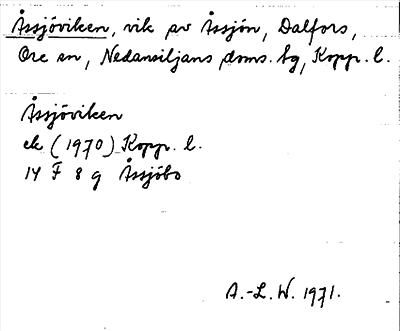 Åssjöviken, vik av Åssjön, Dalfors,
Ore sn, Nedansiljans doms. tg, Kopp. l.
Åssjöviken
ek (1970) Kopp. l.
14 F 8 g Åssjöbo
A.-L. W. 1971.